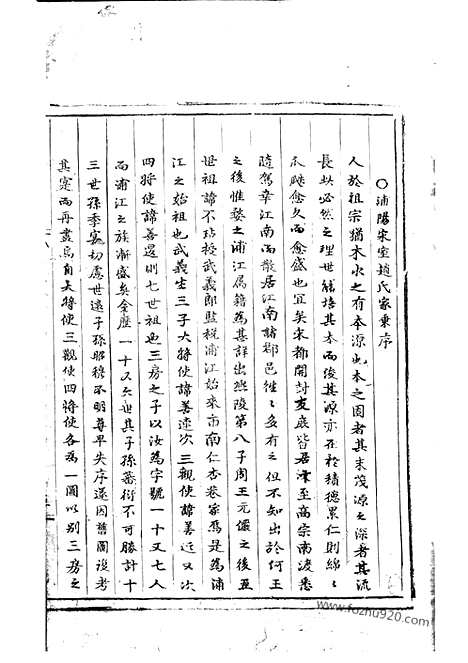 ○浦陽宋室趙氏家乘序
人於祖宗猶木水之有本源也本之固者其末茂源之深者其流
長此必然之理世能培其本而後其源亦在於積德累仁則綿〻
瓜瓞愈久而愈盛也宜矣宋都開封支庶皆居汴至高宗南渡悉
隨駕幸江南而散居江南諸郡邑徃〻多有之但不知出於何王
之後惟婺之浦江属籍為甚詳出熙陵第八子周王元儼之後五
世祖諱不玷授武義郎監税浦江始來市南仁杏巷家焉是為浦
江之始祖也武義生三子大將使諱善逵次三觀使諱善近又次
四將使諱善邊則七世祖也三房之子以汝為字號一十又七人
而浦江之族漸盛矣今歷一十又六世其子孫蕃衍不可勝計十
三世孫季寬切慮世遠子孫昭穆不明尊卑失序遂因舊圖詳考
其寔而再書焉自大將使三觀使四將使各為一圖以别三房之
www.fozhu920.com